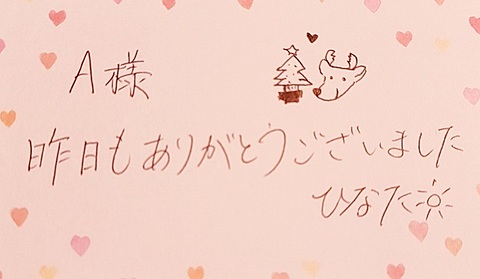 A様
昨日もありがとうございました
ひなた